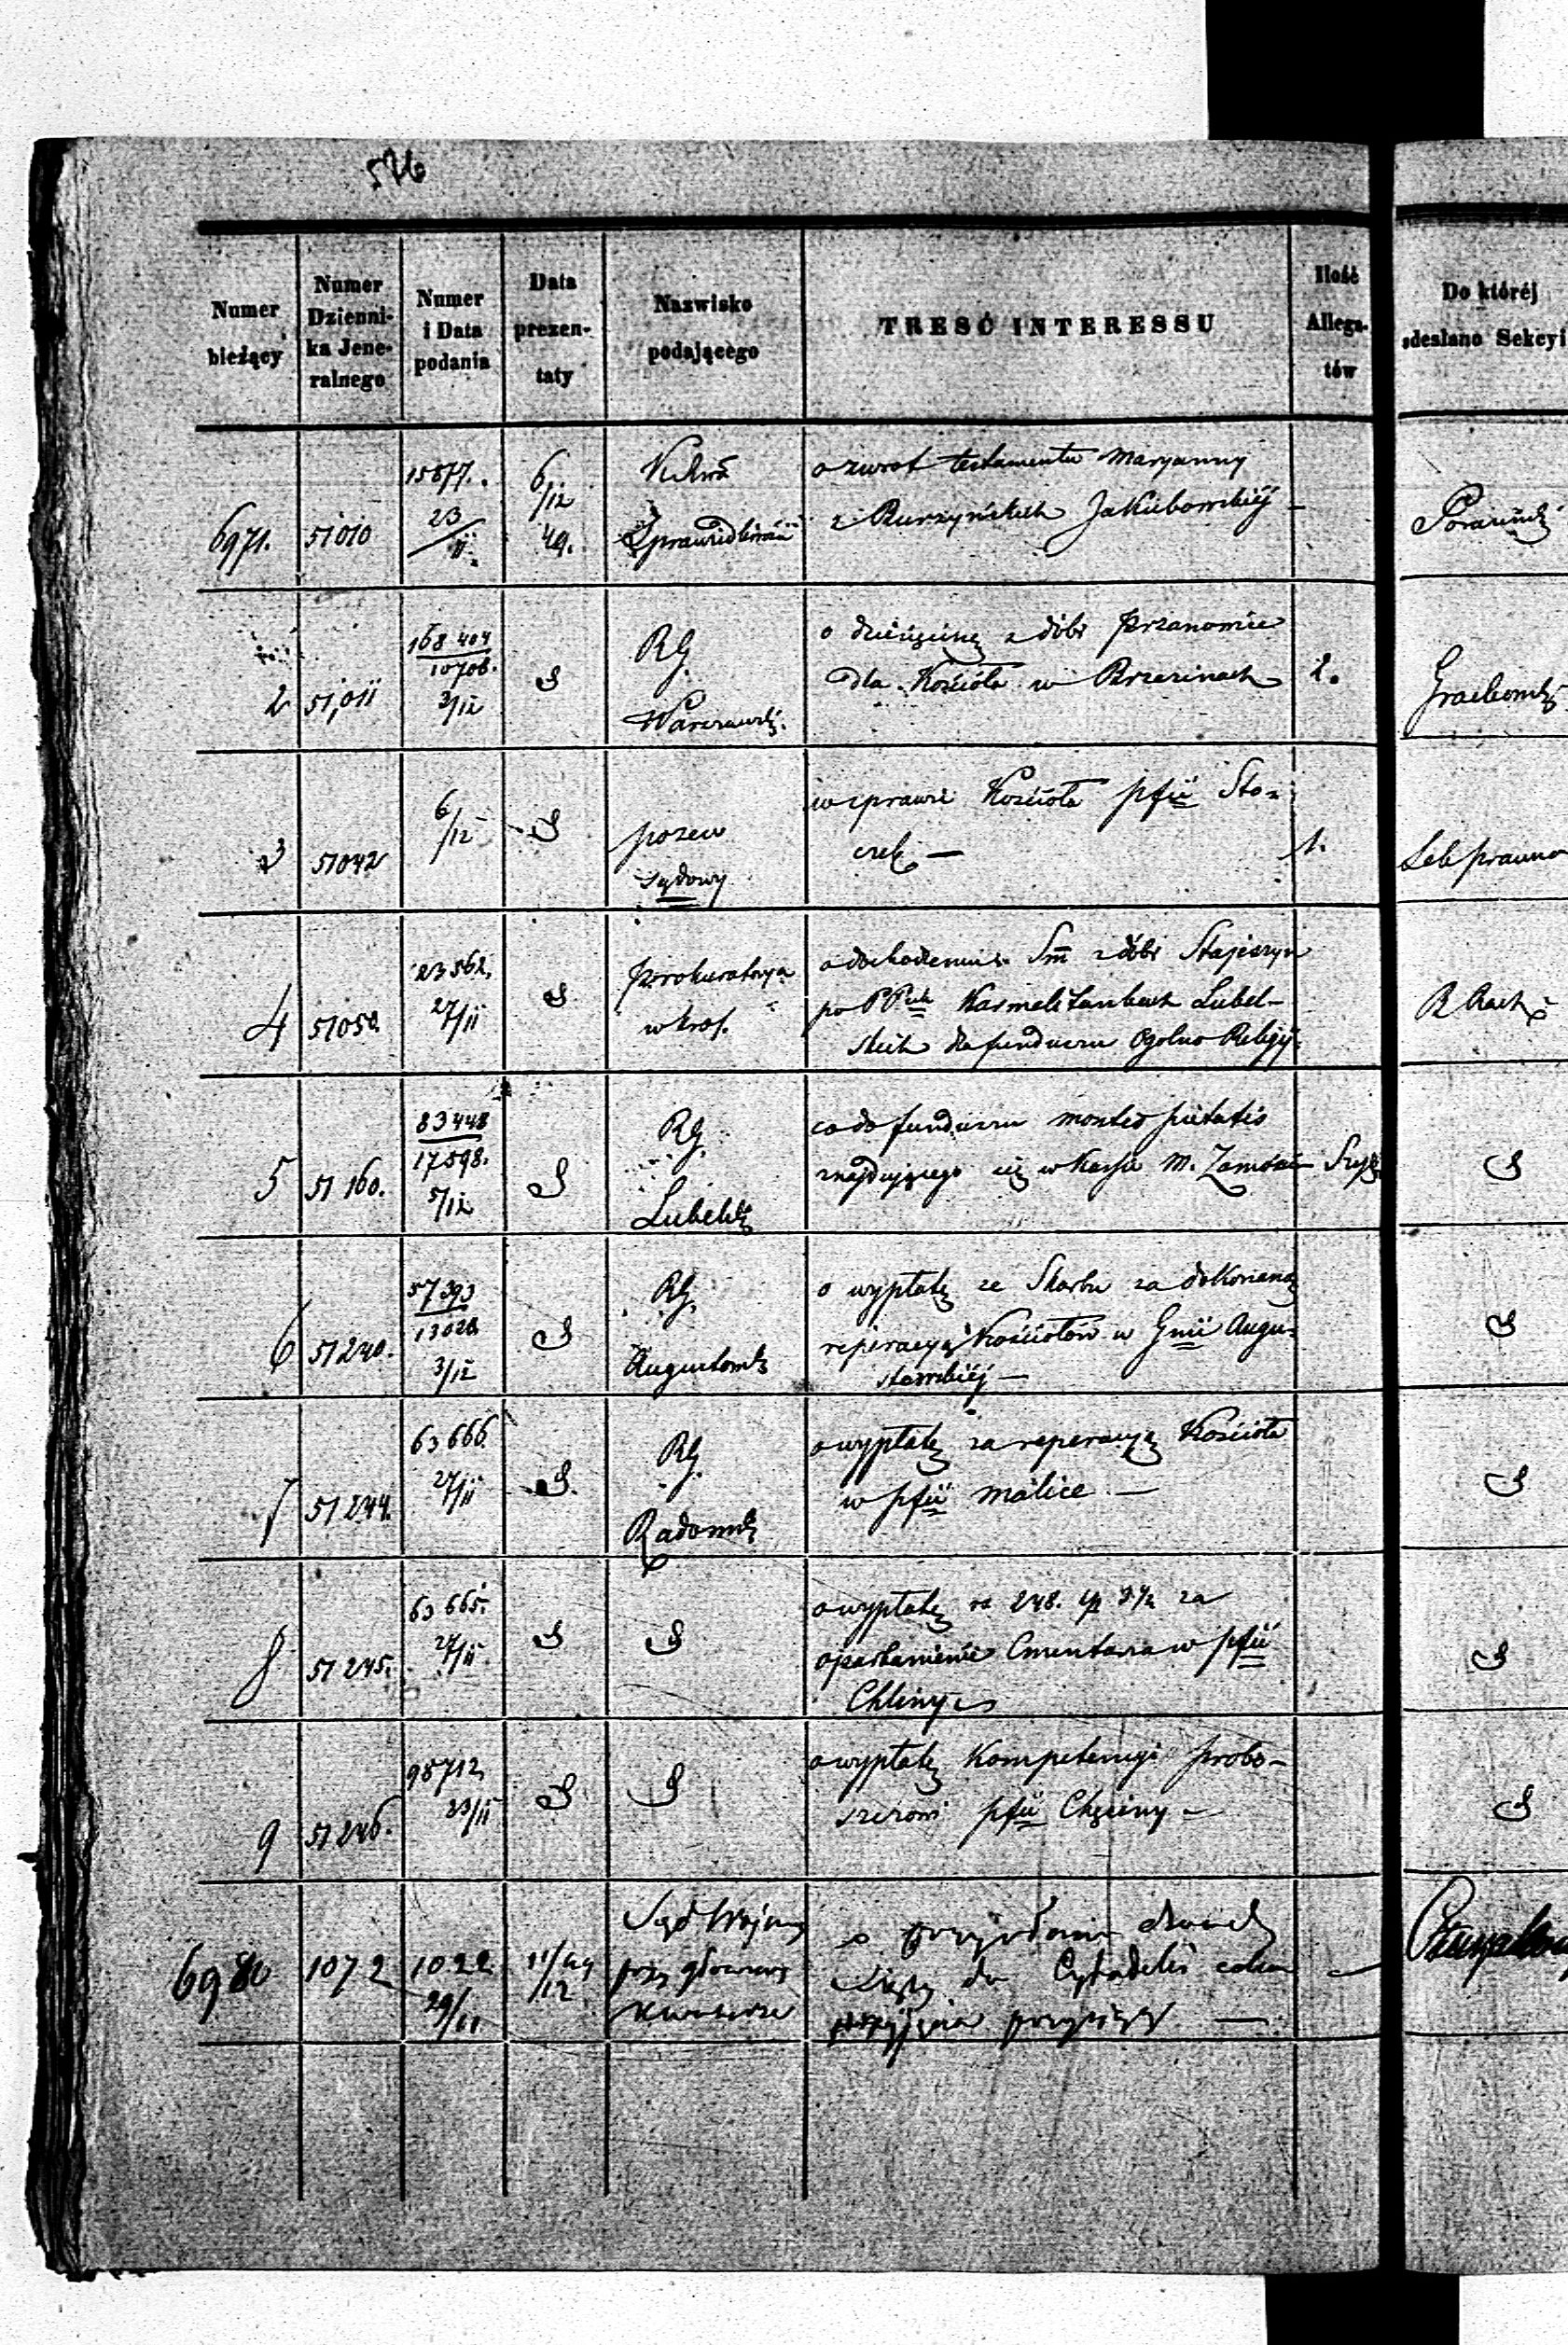 576
Numer bieżący
Numer Dzienni- ka Jene- ralnego
Numer i Data podania
Data prezen- taty
Nazwisko podającego
TRESĆ INTERESSU
Ilość Allega- tów
Do któréj odesłano Sekcyi
6971.
51010
15877.
23/11
6/12
49.
Sprawiedliwości
o zwrot testamentu Maryanny
z Jakubowskiéj
2
51,011
168404
10708.
3/12
RG
Warszawsk.
o dziesięcinę z dóbr Przanowice
dla Kościoła w Brzezinach
2.
3
51042
6/12
pozew
sądowy
w sprawie Kościoła pfii Sto-
czek —
1.
4
51050
23562.
27/11
Prokuratorya
w Król.
o dochodzeniu Sm z dóbr
po PP Karmelitankach Lubel-
skich dla funduszu Ogolno Religij.
5
51160.
83448
17598.
5/12
RG.
Lubelsk
co do funduszu montis pietatis
znajdującego się w Kassie M. Zamościa
6
51240.
57393
13028
3/12
RG.
Augustowsk
o wypłatę ze Skarbu za dokonaną
reperacyą Kościołów w Gnii Augu-
stowskiéj —
7
51244.
63666
27/11
RG.
Radomsk
o wypłatę za reperacyą Kościoła
w pfii Malice —
8
51245.
63665.
27/11
o wypłatę rs 248. kp 3½ za
oparkanienie Cmentarza w pfii
Chliny
9
51246.
98712
23/11
o wypłatę Kompetencyi probo-
szczowi pfii Chęciny —
6980
1072
1022
29/11
11/12 49
Sąd Wojenny
przy głównej
Kwaterze
o
do Cytadelli celem
przyjęcia przysięgi —